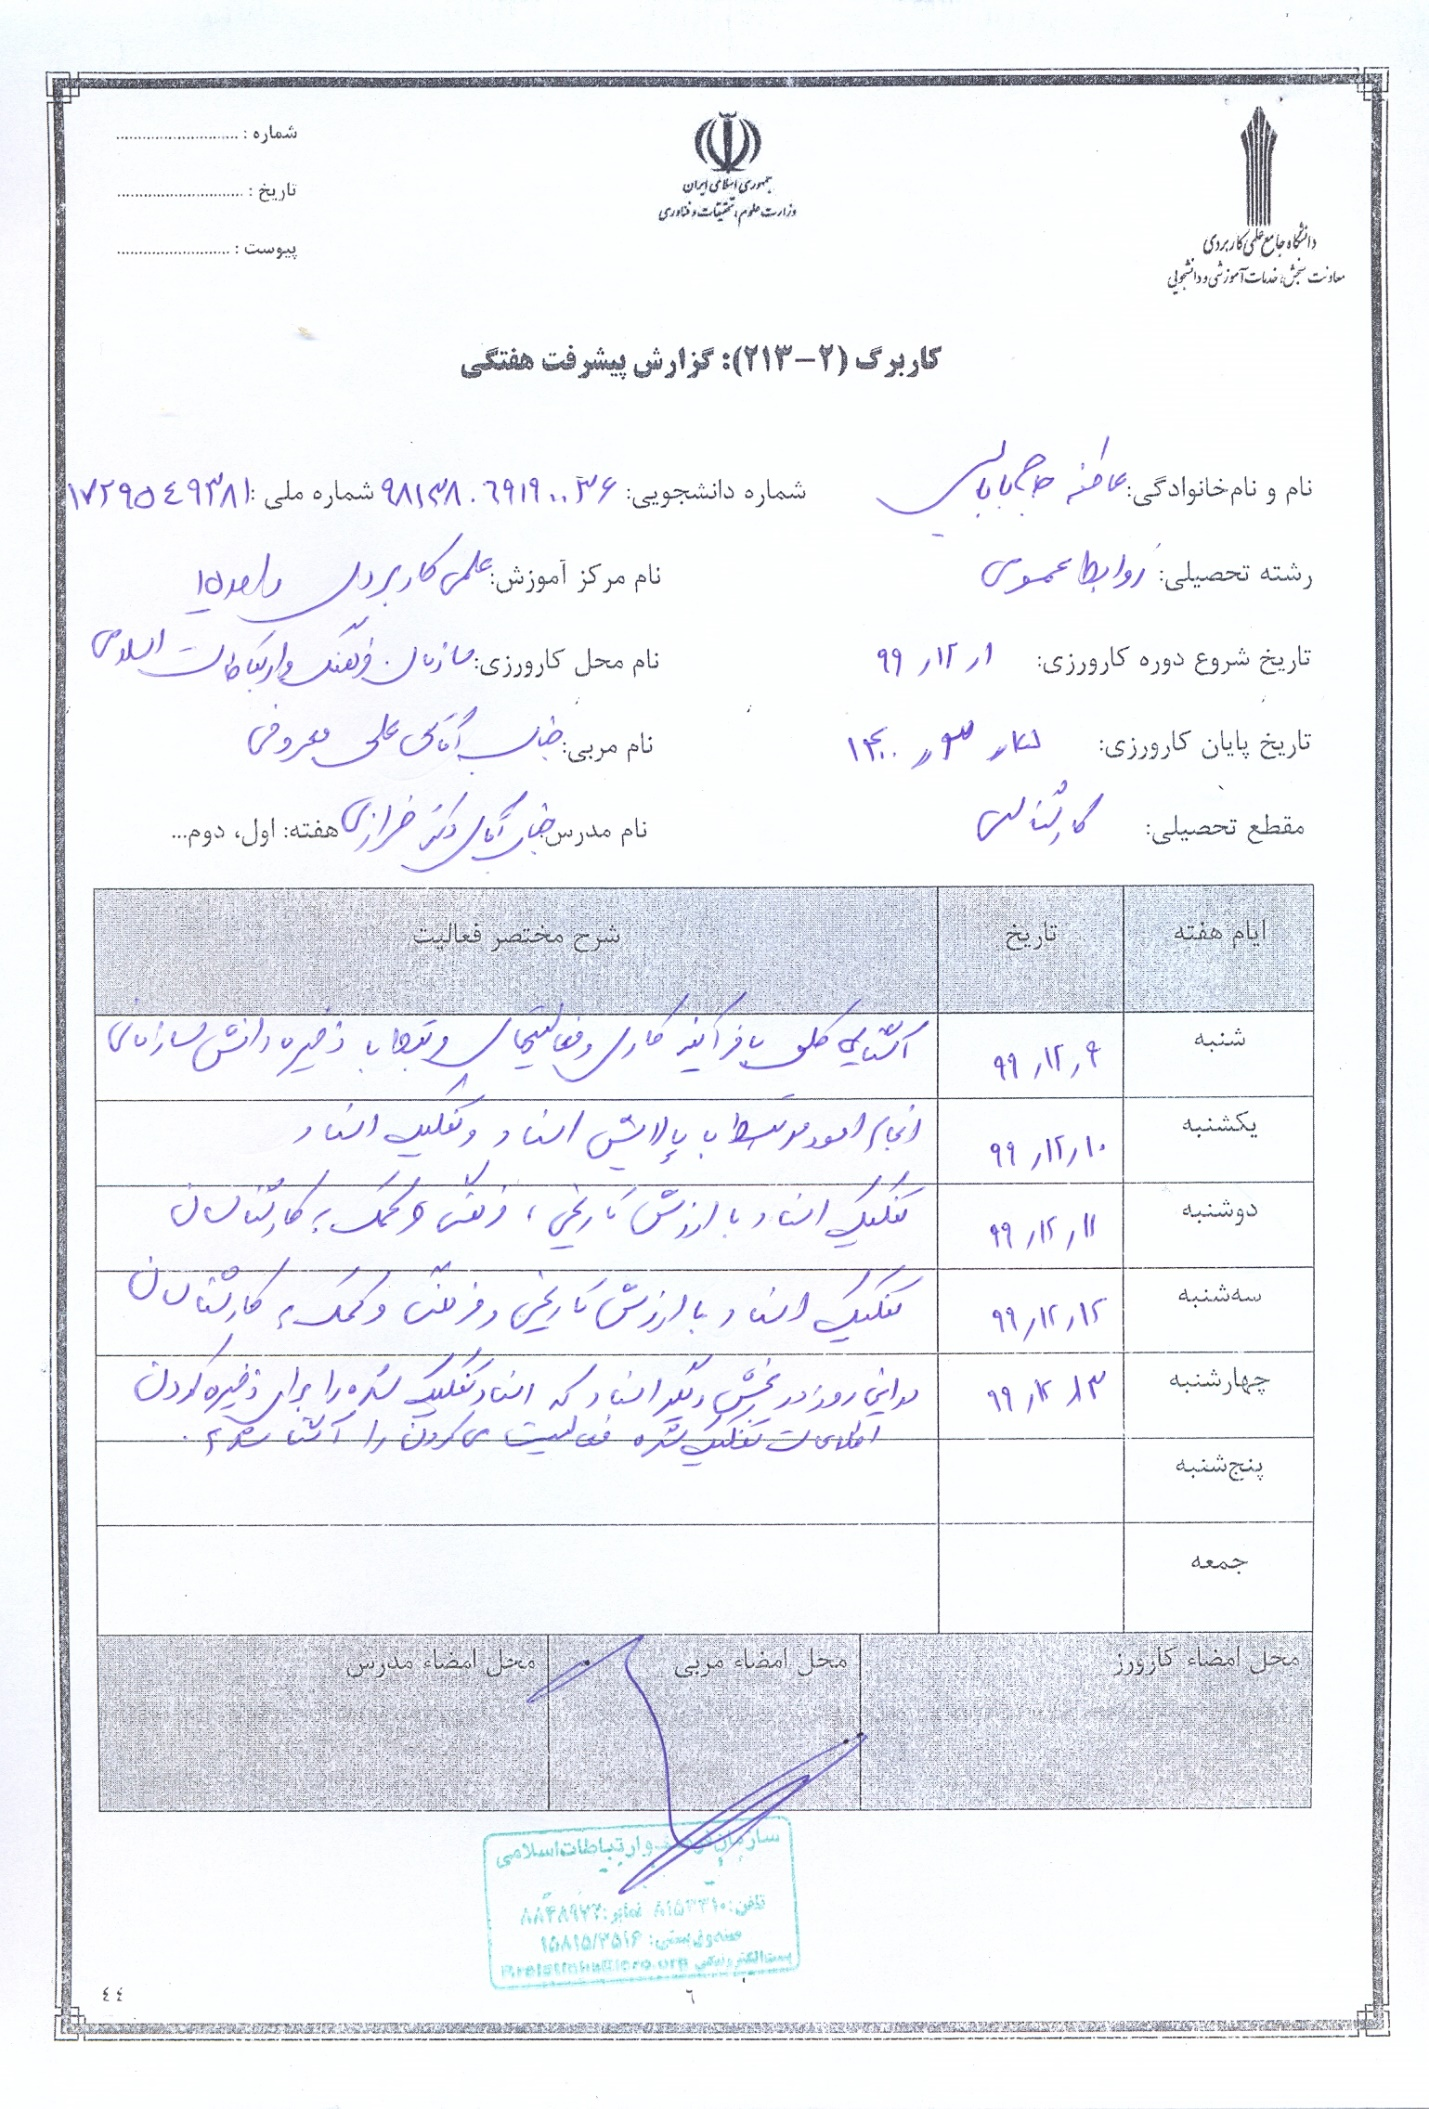 شماره : ............................
تاریخ : ............................
پیوست : ............................
جمهوری اسلامی ایران
وزارت علوم، تحقیقات و فناوری
دانشگاه جامع علمی کاربردی
معاونت سنجش، خدمات آموزشی و دانشجویی
کاربرگ (۲-۲۱۳): گزارش پیشرفت هفتگی
نام و نام‌خانوادگی: عاطفه حاج بابایی شماره دانشجویی: شماره ملی:
رشته تحصیلی: روابط عمومی نام مرکز آموزش: علمی کاربردی واحد ۱۵
تاریخ شروع دوره کارورزی: ۹۹٫۱۲٫۱ نام محل کارورزی: سازمان فرهنگ و ارتباطات اسلامی
تاریخ پایان کارورزی: ۱۴۰۰ نام مربی: جناب آقای علی معروفی
مقطع تحصیلی: کارشناسی نام مدرس جناب آقای دکتر خرازی هفته: اول، دوم...
ایام هفته تاریخ شرح مختصر فعالیت
شنبه ۹۹٫۱۲٫۹ آشنایی کلی با فرآیند کاری و فعالیتهای مرتبط با ذخیره دانش سازمانی
یکشنبه ۹۹٫۱۲٫۱۰ انجام امور مرتبط با پالایش اسناد و تفکیک اسناد
دوشنبه ۹۹٫۱۲٫۱۱ تفکیک اسناد با ارزش تاریخی، فرهنگی و کمک به کارشناسان
سه‌شنبه ۹۹٫۱۲٫۱۲ تفکیک اسناد با ارزش تاریخی و فرهنگی و کمک به کارشناسان
چهارشنبه ۹۹٫۱۲٫۱۳ در این روز در بخش دیگر اسناد که اسناد تفکیک شده را برای ذخیره کردن
اطلاعات تفکیک شده فعالیت می کردن را آشنا شدم.
پنج‌شنبه
جمعه
محل امضاء کارورز محل امضاء مربی محل امضاء مدرس
سازمان فرهنگ و ارتباطات اسلامی
تلفن: نمابر:
صندوق پستی: ۱۵۸۱۵/۳۵۱۶
پست الکترونیکی
۶
۴۴